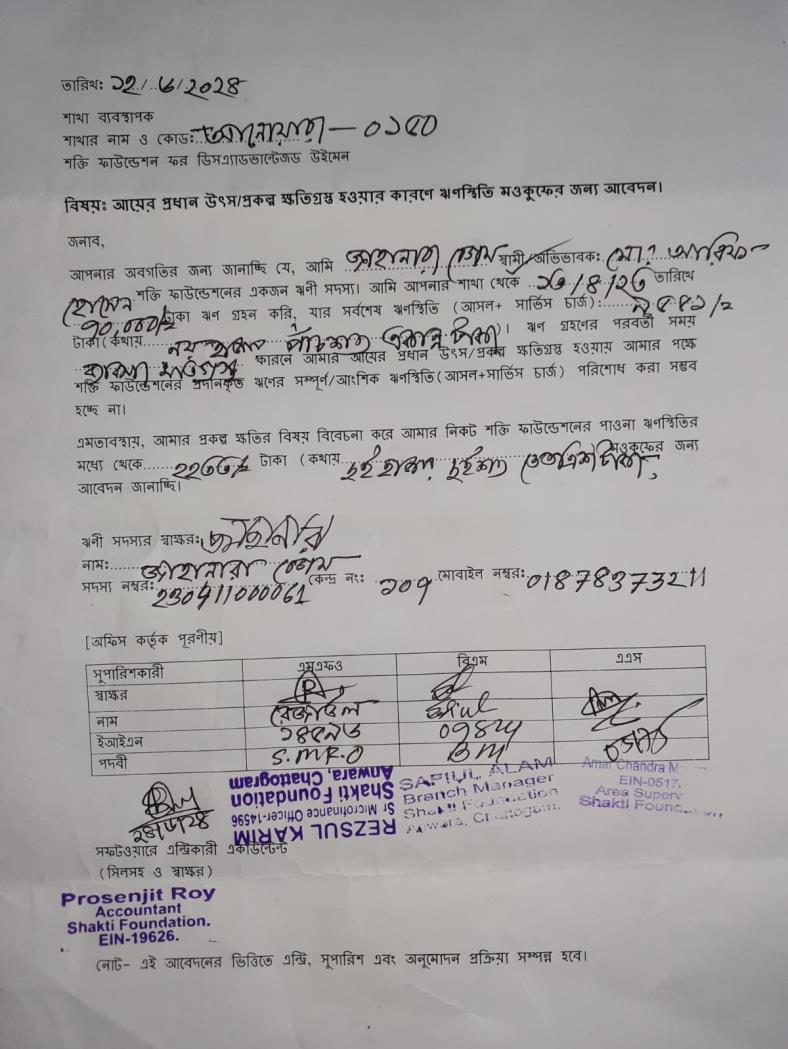 তারিখ: ১২/৬/২০২৪
শাখা ব্যবস্থাপক
শাখার নাম ও কোড: আনোয়ারা - ০১৫০
শক্তি ফাউন্ডেশন ফর ডিসএ্যাডভান্টেজড উইমেন
বিষয়: আয়ের প্রধান উৎস/প্রকল্প ক্ষতিগ্রস্ত হওয়ার কারণে ঋণস্থিতি মওকুফের জন্য আবেদন।
জনাব,
আপনার অবগতির জন্য জানাচ্ছি যে, আমি জাহানারা বেগম স্বামী/অভিভাবক: মো: আরিফ-
হোসেন শক্তি ফাউন্ডেশনের একজন ঋণী সদস্য। আমি আপনার শাখা থেকে ২৩/৪/২৩ তারিখে
টাকা ঋণ গ্রহন করি, যার সর্বশেষ ঋণস্থিতি (আসল+ সার্ভিস চার্জ): ৯৫৫১/২
টাকা (কথায় নয় হাজার পাঁচশত একান্ন টাকা)। ঋণ গ্রহণের পরবর্তী সময়
কারণে আমার আয়ের প্রধান উৎস/প্রকল্প ক্ষতিগ্রস্ত হওয়ায় আমার পক্ষে
শক্তি ফাউন্ডেশনের প্রদানকৃত ঋণের সম্পূর্ণ/আংশিক ঋণস্থিতি (আসল+সার্ভিস চার্জ) পরিশোধ করা সম্ভব
হচ্ছে না।
এমতাবস্থায়, আমার প্রকল্প ক্ষতির বিষয় বিবেচনা করে আমার নিকট শক্তি ফাউন্ডেশনের পাওনা ঋণস্থিতির
মধ্যে থেকে ২২৩৩/২ টাকা (কথায় দুই হাজার দুইশত তেত্রিশ টাকা) মওকুফের জন্য
আবেদন জানাচ্ছি।
ঋণী সদস্যের স্বাক্ষর: জাহানারা
নাম: জাহানারা বেগম
সদস্য নম্বর: কেন্দ্র নং: ২০৭ মোবাইল নম্বর: 01878373211
[অফিস কর্তৃক পূরণীয়]
সুপারিশকারী এমএফও বিএম এএস
স্বাক্ষর
নাম রেজাউল
ইআইএন
পদবী S.MF.O BM
REZSUL KARIM
Sr Microfinance Officer-14596
Shakti Foundation
Anwara, Chattogram
SAFIUL ALAM
Branch Manager
Shakti Foundation
Anwara, Chattogram.
Amar Chandra M
EIN-0517.
Area Superv
Shakti Found
সফটওয়ারে এন্ট্রিকারী একাউন্টেন্ট
(সিলসহ ও স্বাক্ষর)
Prosenjit Roy
Accountant
Shakti Foundation.
EIN-19626.
নোট- এই আবেদনের ভিত্তিতে এন্ট্রি, সুপারিশ এবং অনুমোদন প্রক্রিয়া সম্পন্ন হবে।